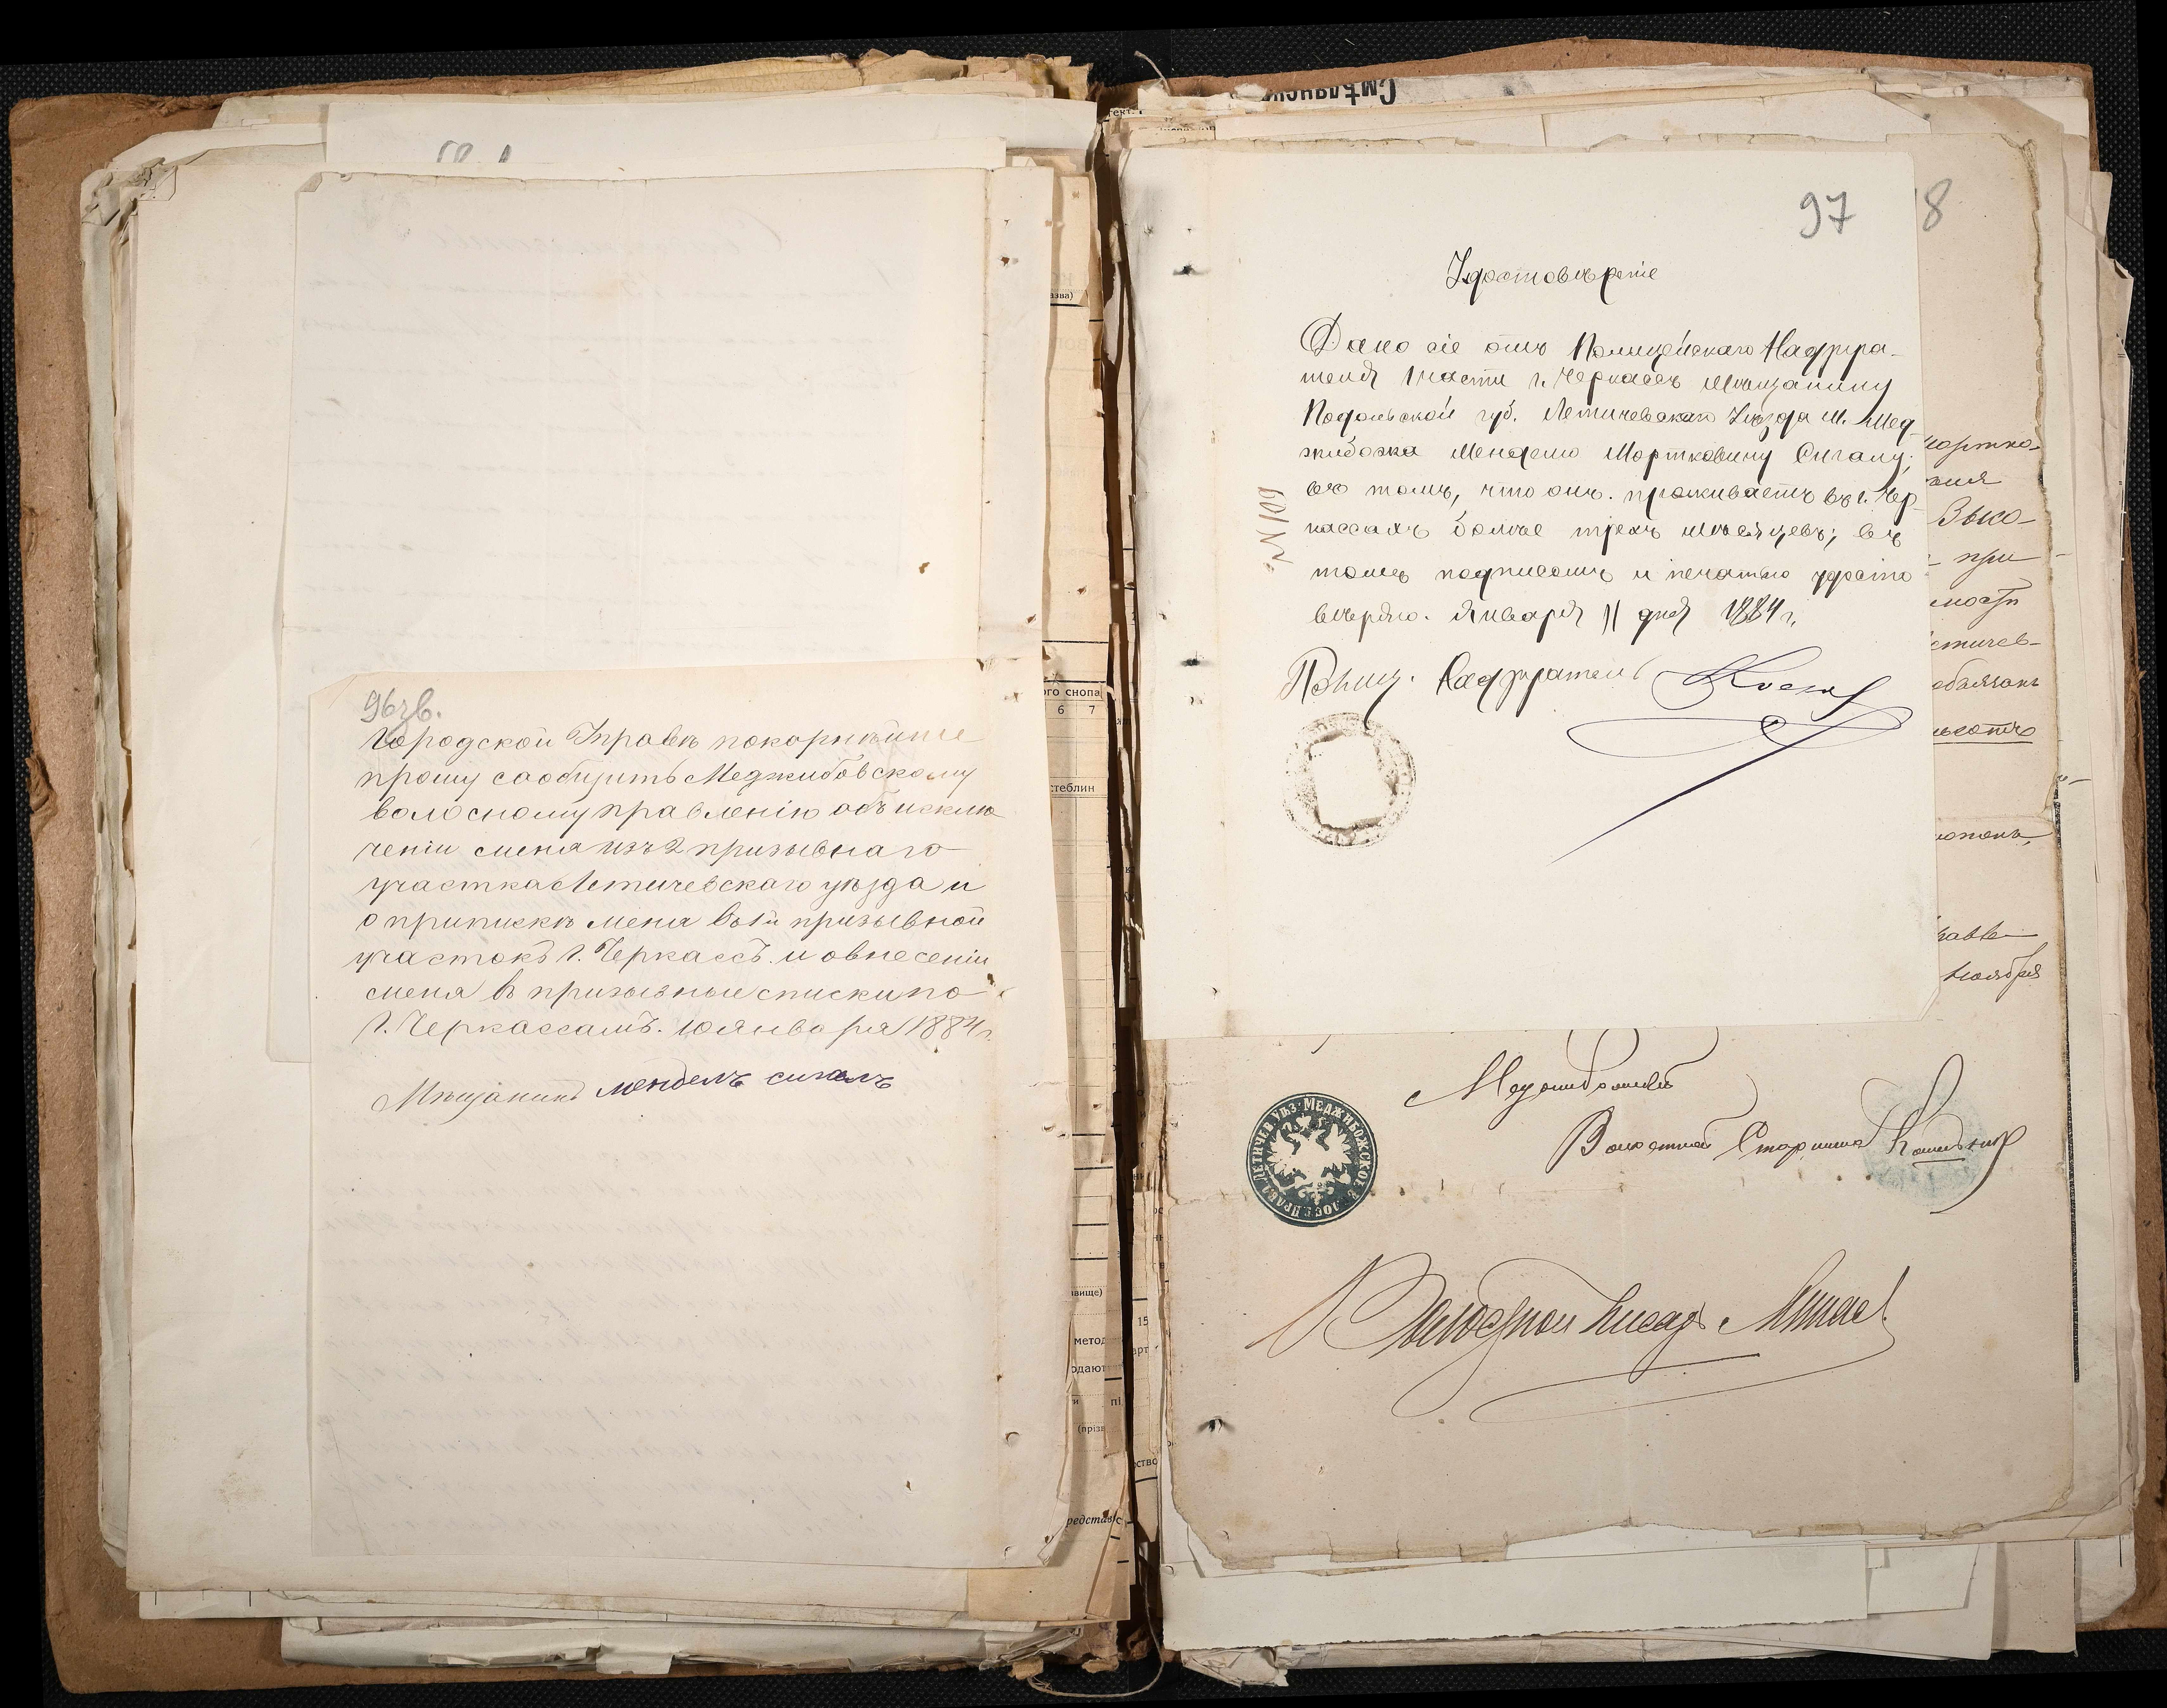 96 зв.
Городской Управѣ покорнѣйше
прошу сообщить Меджибовскому
волосному правленію объ исклю
ченіи смена изъ 2 призывнаго
участка Летичевскаго уѣзда и
о припискѣ мена въ 1й призывной
участокъ г. Черкассъ. и овнесеніи
смена въ призывные списки по
г. Черкассамъ. 10 января 1884 г.
Мѣщанинъ мендель сигалъ
97
Удостовѣреніе
Дано сіе отъ Полицейскаго Надзира-
теля 1 части г. Черкассъ мѣщанину
Подольской губ. Летичевскаго Уѣзда м. Мед-
жибожа Менделю Мортковичу Сигалу;
въ томъ, что онъ. проживаетъ въ г. Чер-
кассахъ болѣе трехъ мѣсяцевъ; въ
томъ подписомъ и печатью удосто
вѣряю. Января 11 дня 1884 г.
№ 109
Полиц. Надзиратель
8
Мортко-
Выко-
при
мости
Летичев-
обязанъ
ноября
Меджибожскій
Волостной Старшина
ЛЕТИЧЕВ. УѢЗ. МЕДЖИБОЖСКОЕ ВОЛОСТ. ПРАВЛ.
Волостной Писарь
Смѣлянск
ого снопа
6 7
стеблин
азва)
звище)
метод
одают
(прізв
редстав
15
арт
ство